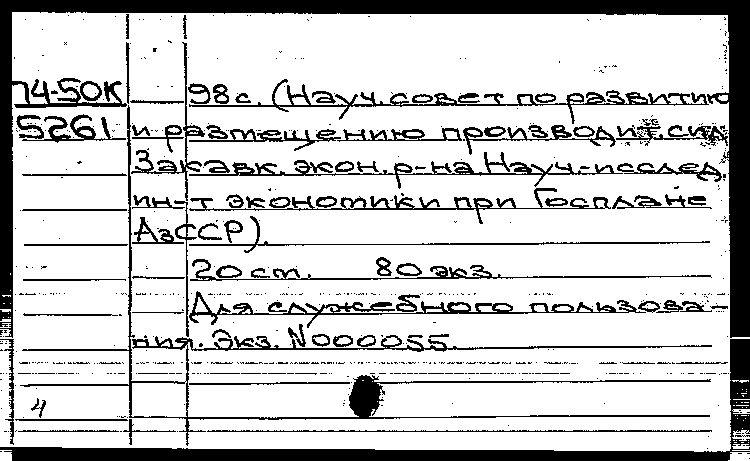 74-50К 98 с. (Науч. совет по развитию
5261 и размещению производит. сил
Закавк. экон. р-на. Науч.-исслед.
ин-т экономики при Госплане
АзССР).
20 ст. 80 экз.
Для служебного пользова-
ния. Экз. N000055.
4